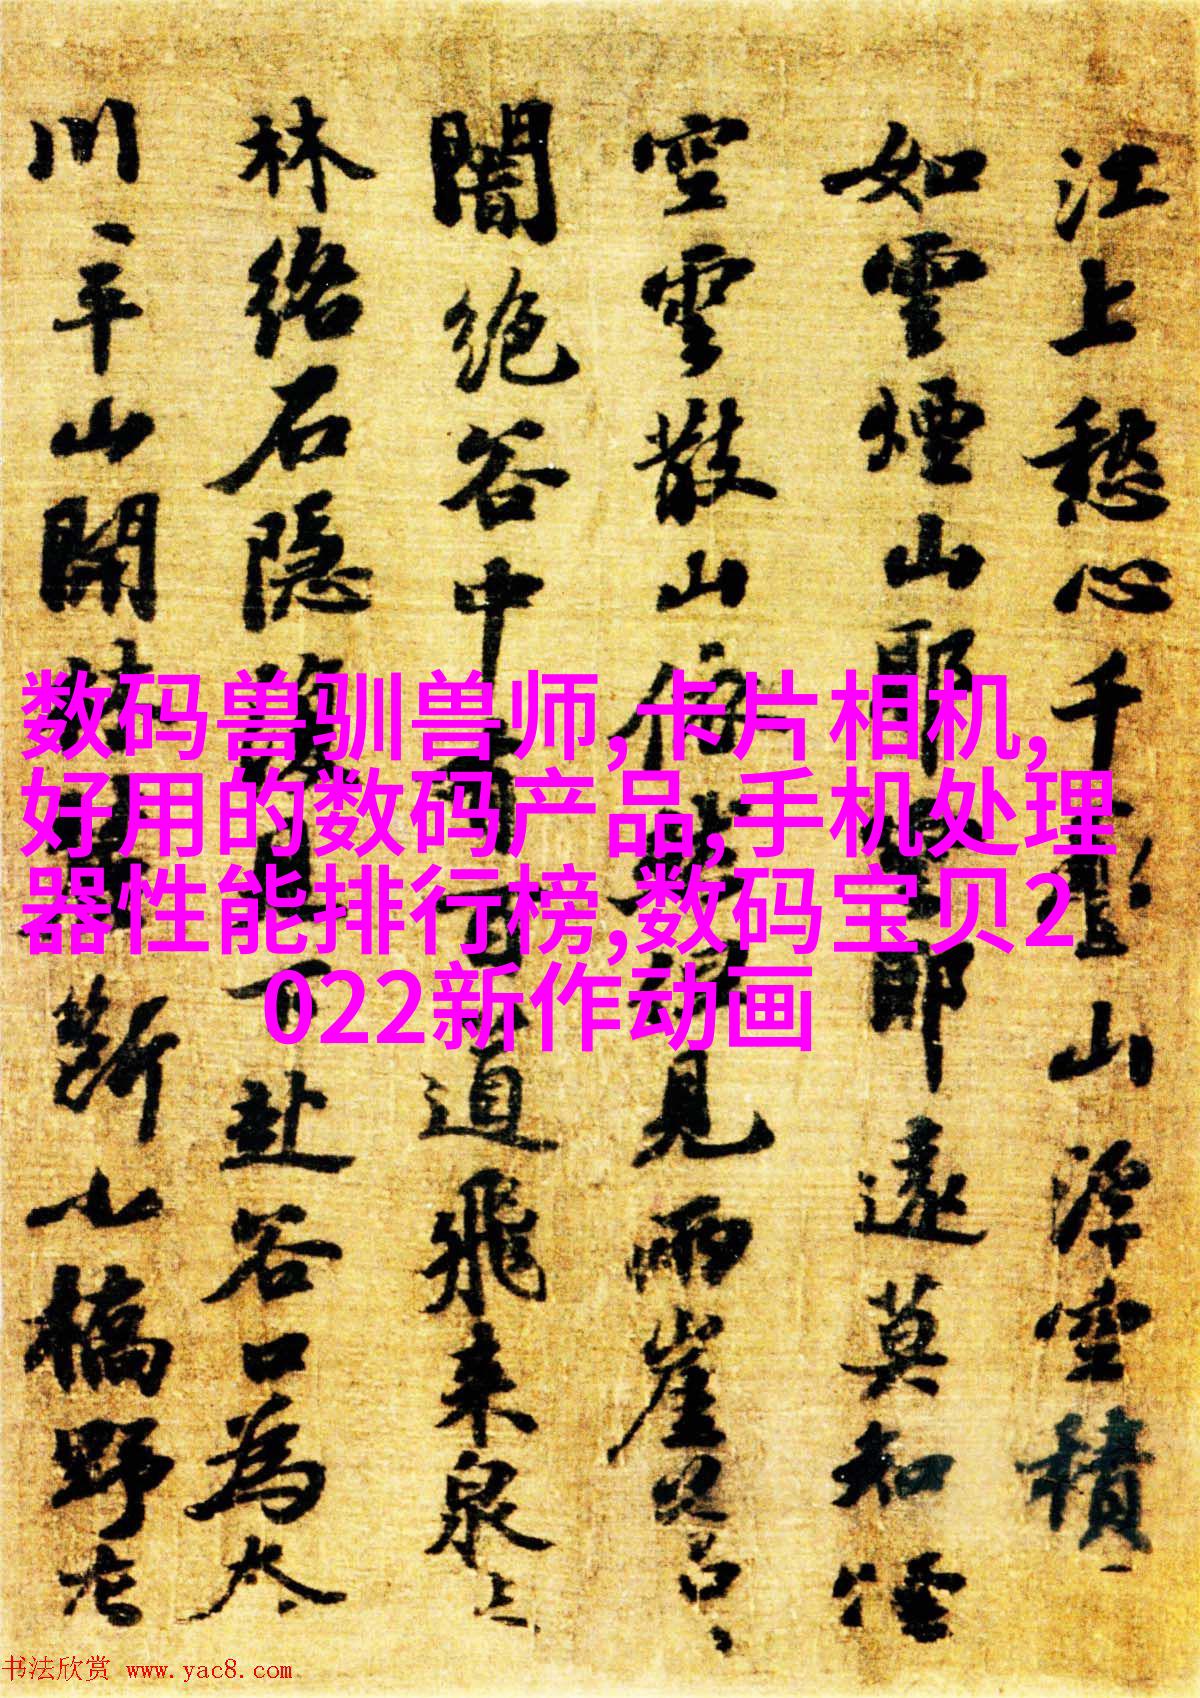 江上愁心千山浮空積
如雲煙山耶耶遠莫知煙
空雲散山依見兩崖蒼
闇絕谷中道飛來泉
林絡石隱下赴谷口為
川平山開斷小橋野店
数码兽驯兽师,卡片相机,
好用的数码产品,手机处理
器性能排行榜,数码宝贝2
022新作动画
书法欣赏 www.yac8.com